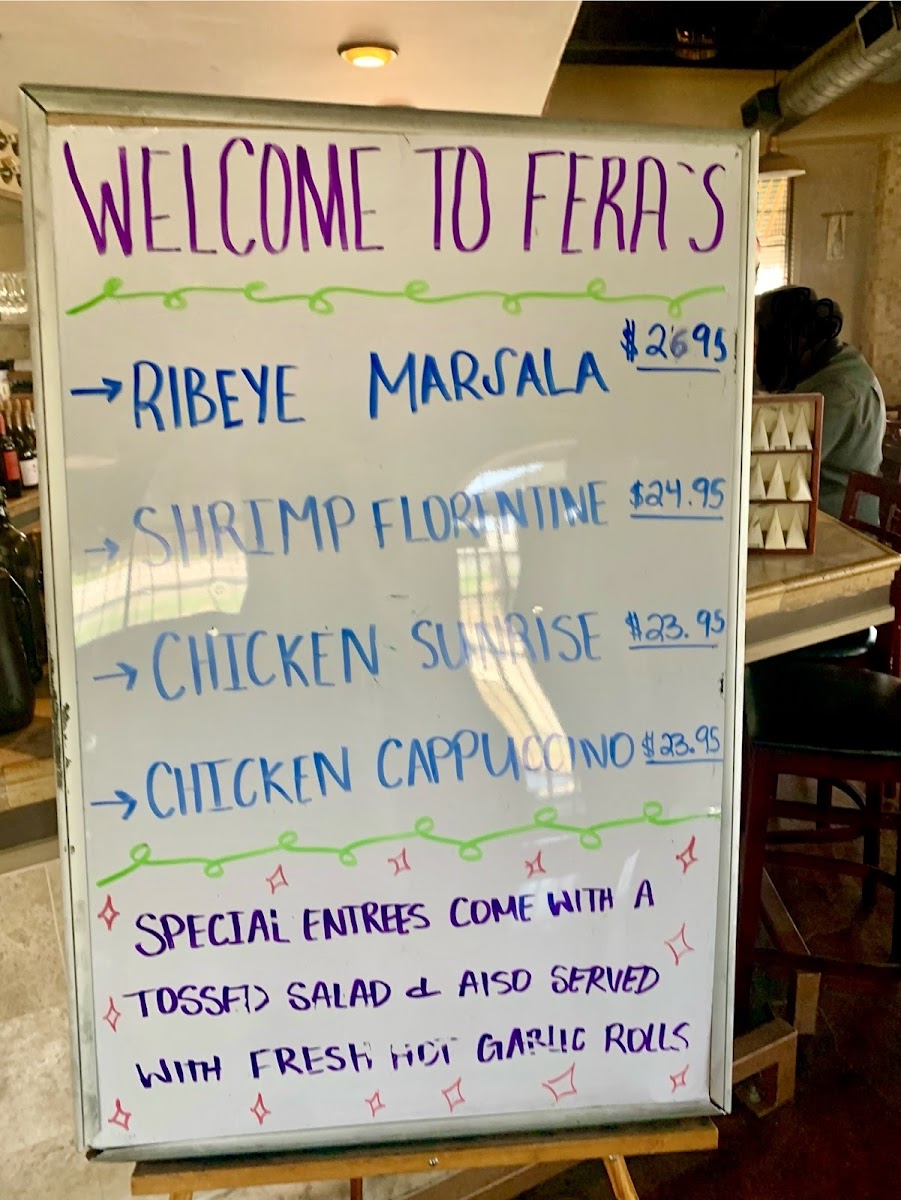 WELCOME TO FERA'S
→ RIBEYE MARSALA $26.95
→ SHRIMP FLORENTINE $24.95
→ CHICKEN SUNRISE $23.95
→ CHICKEN CAPPUCCINO $23.95
SPECIAL ENTREES COME WITH A
TOSSED SALAD & ALSO SERVED
WITH FRESH HOT GARLIC ROLLS